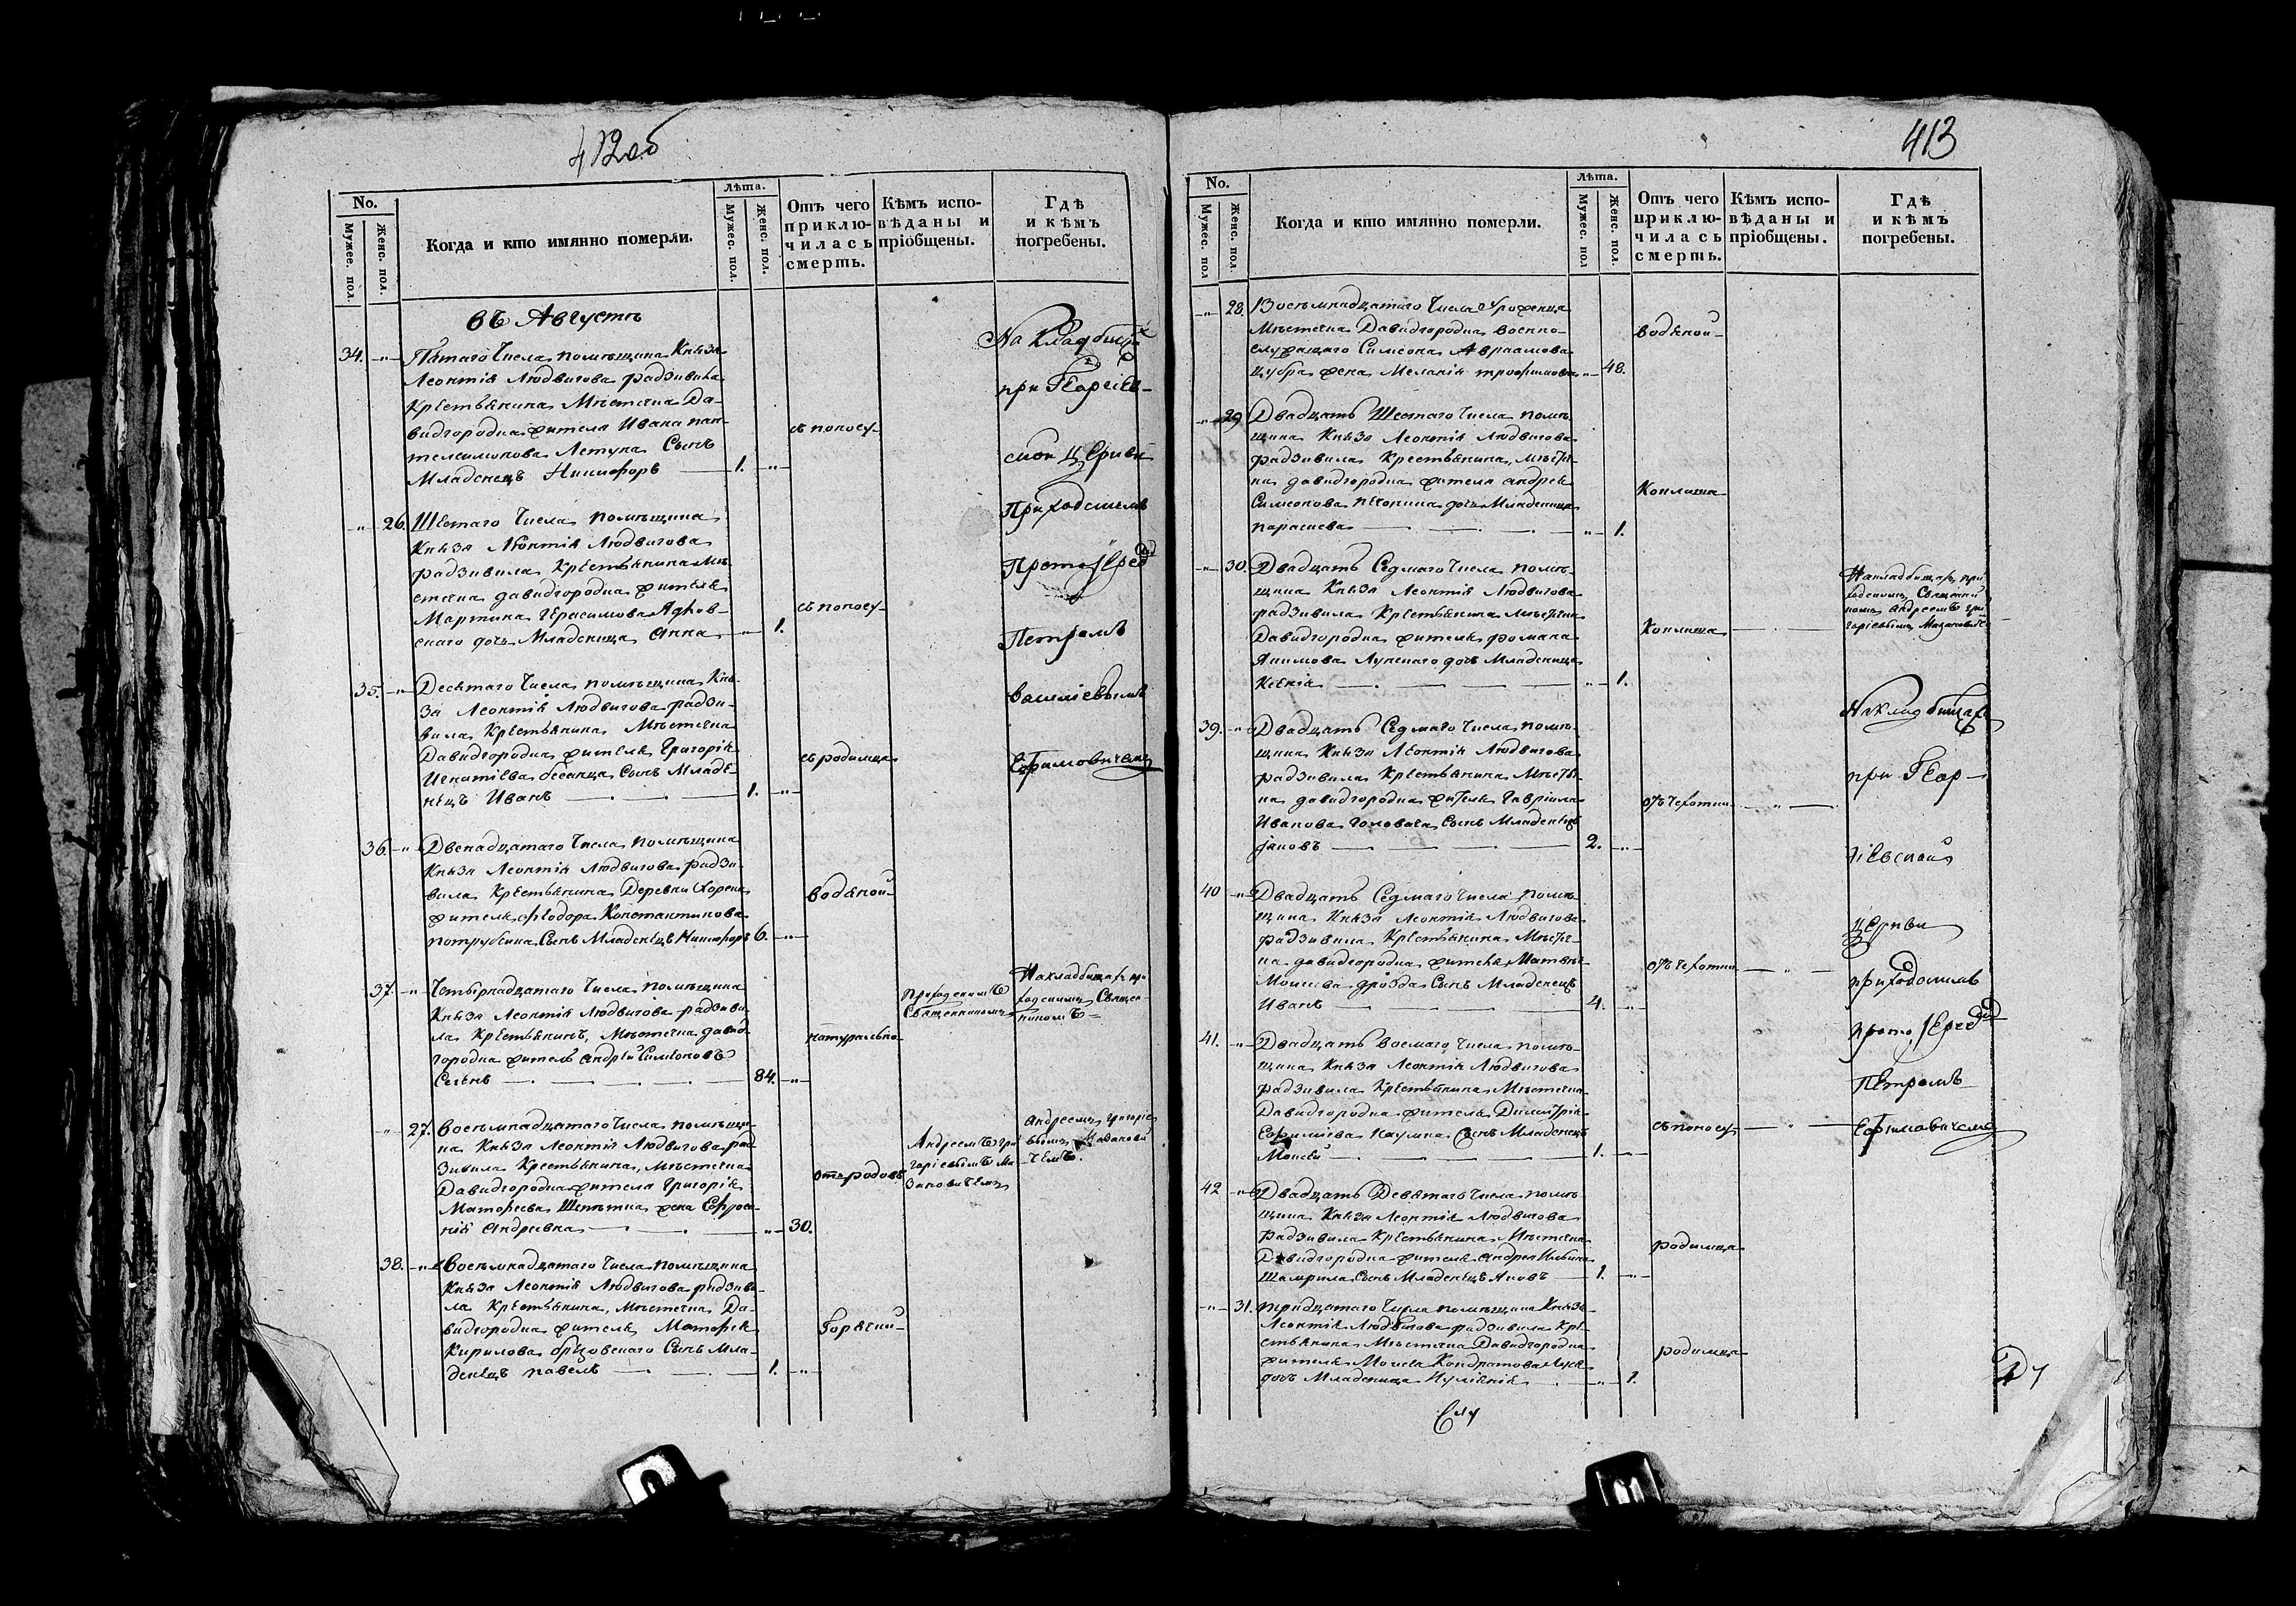 412 об
No.
Мужес. пол.
Женс. пол.
Когда и кто имянно померли.
Лѣта.
Мужес. пол.
Женс. пол.
Отъ чего
приклю-
чилась
смерть.
Кѣмъ испо-
вѣданы и
пріобщены.
Гдѣ
и кѣмъ
погребены.
въ Августѣ
34. Пятаго Числа помѣщика Князя
Леонтія Людвигова радзивила
Крестьянина Мѣстечка Да-
видгородка жителя Ивана пан-
телеимонова Летуна Сынъ
Младенецъ Никифоръ 1.
съ поносу
На Кладбищѣ
при Георгіев-
ской Церкви
Приходскимъ
Протоіерей
Петромъ
Василіевымъ
Ефимовичемъ
26. Шестаго Числа помѣщика
Князя Леонтія Людвигова
радзивила Крестьянина Мѣ-
стечка давидгородка жителя
Мартина Герасимова
скаго дочь Младеница Анна 1.
съ поносу
35. Десятаго Числа помѣщика Кня-
зя Леонтія Людвигова радзи-
вила Крестьянина Мѣстечка
Давидгородка жителя Григорія
Игнатіева Сынъ Младе-
нецъ Иванъ 1.
съ родимца
36. Двенадцатаго Числа помѣщика
Князя Леонтія Людвигова радзи-
вила Крестьянина Деревни Хорска
жителя феодора Константинова
Сынъ Младенецъ Никифоръ 6.
водяной
37. Четырнадцатаго Числа помѣщика
Князя Леонтія Людвигова радзиви-
ла Крестьянинъ, Мѣстечка давид-
городка житель Андрей Симеоновъ
84.
натурально
Приходскимъ
Священникомъ
На кладбищахъ при-
ходскимъ Священ-
никомъ
27. Восемнадцатаго Числа помѣщи-
ка Князя Леонтія Людвигова рад-
зивила Крестьянина, Мѣстечка
Давидгородка жителя Григорія
Матфеева жена Ефроси-
нія Андреевна 30.
отъ родовъ
Андреемъ Гри-
горіевымъ Ма-
зановичемъ
Андреемъ Григоріе-
вымъ Мазанови-
чемъ.
38. Восемнадцатаго Числа помѣщика
Князя Леонтія Людвигова радзиви-
ла Крестьянина, Мѣстечка Да-
видгородка жителя Матфея
Кирилова Сынъ Мла-
денецъ павелъ 1.
Горячки
413
No.
Мужес. пол
Женс. пол.
Когда и кто имянно померли.
Лѣта.
Мужес. пол
Женс. пол.
Отъ чего
приклю-
чилась
смерть.
Кѣмъ испо-
вѣданы и
пріобщены.
Гдѣ
и кѣмъ
погребены.
28. Восемнадцатаго Числа Урожença
Мѣстечка Давидгородка военно-
служащаго Симеона Авраамова
жена Меланія трофимова 48.
водяной
29 Двадцать Шестаго Числа помѣ-
щика Князя Леонтія Людвигова
радзивила Крестьянина, Мѣстеч-
ка давидгородка жителя андрея
Симеонова дочь Младеница
параскева 1.
Коклиша
30. Двадцать Седмаго Числа помѣ-
щика Князя Леонтія Людвигова
радзивила Крестьянина Мѣстечка
Давидгородка жителя романа
Якимова Лупскаго дочь Младеница
Ксенія 1.
Коклиша
На кладбищахъ при-
ходскимъ Священни-
комъ андреемъ Гри-
горіевымъ Мазановиче
39. Двадцать Седмаго Числа помѣ-
щика Князя Леонтія Людвигова
радзивила Крестьянина Мѣстеч-
ка давидгородка жителя Гавріила
Иванова Головача Сынъ Младенецъ
Іаковъ 2.
отъ чехотки
На кладбищахъ
при Геор-
гіевской
Церкви
приходскимъ
протоіерей
Петромъ
Ефимовичемъ
40 Двадцать Седмаго Числа помѣ-
щика Князя Леонтія Людвигова
радзивила Крестьянина Мѣстеч-
ка давидгородка жителя Матвея
Моисеева дрозда Сынъ Младенецъ
Иванъ 4.
отъ чехотки
41. Двадцать восмаго Числа помѣ-
щика Князя Леонтія Людвигова
радзивила Крестьянина Мѣстечка
Давидгородка жителя Димитрія
Сынъ Младенецъ
Моисей 1.
съ поносу
42 Двадцать Девятаго Числа помѣ-
щика Князя Леонтія Людвигова
Радзивила Крестьянина Мѣстечка
Давидгородка жителя Андрея Ильина
Сынъ Младенецъ Яковъ 1.
родимца
31. тридцатаго Числа помѣщика Князя
Леонтія Людвигова радзивила Кре-
стьянина Мѣстечка Давидгородка
жителя Моисея Кондратова
дочь Младеница Иуліянія 1.
родимца